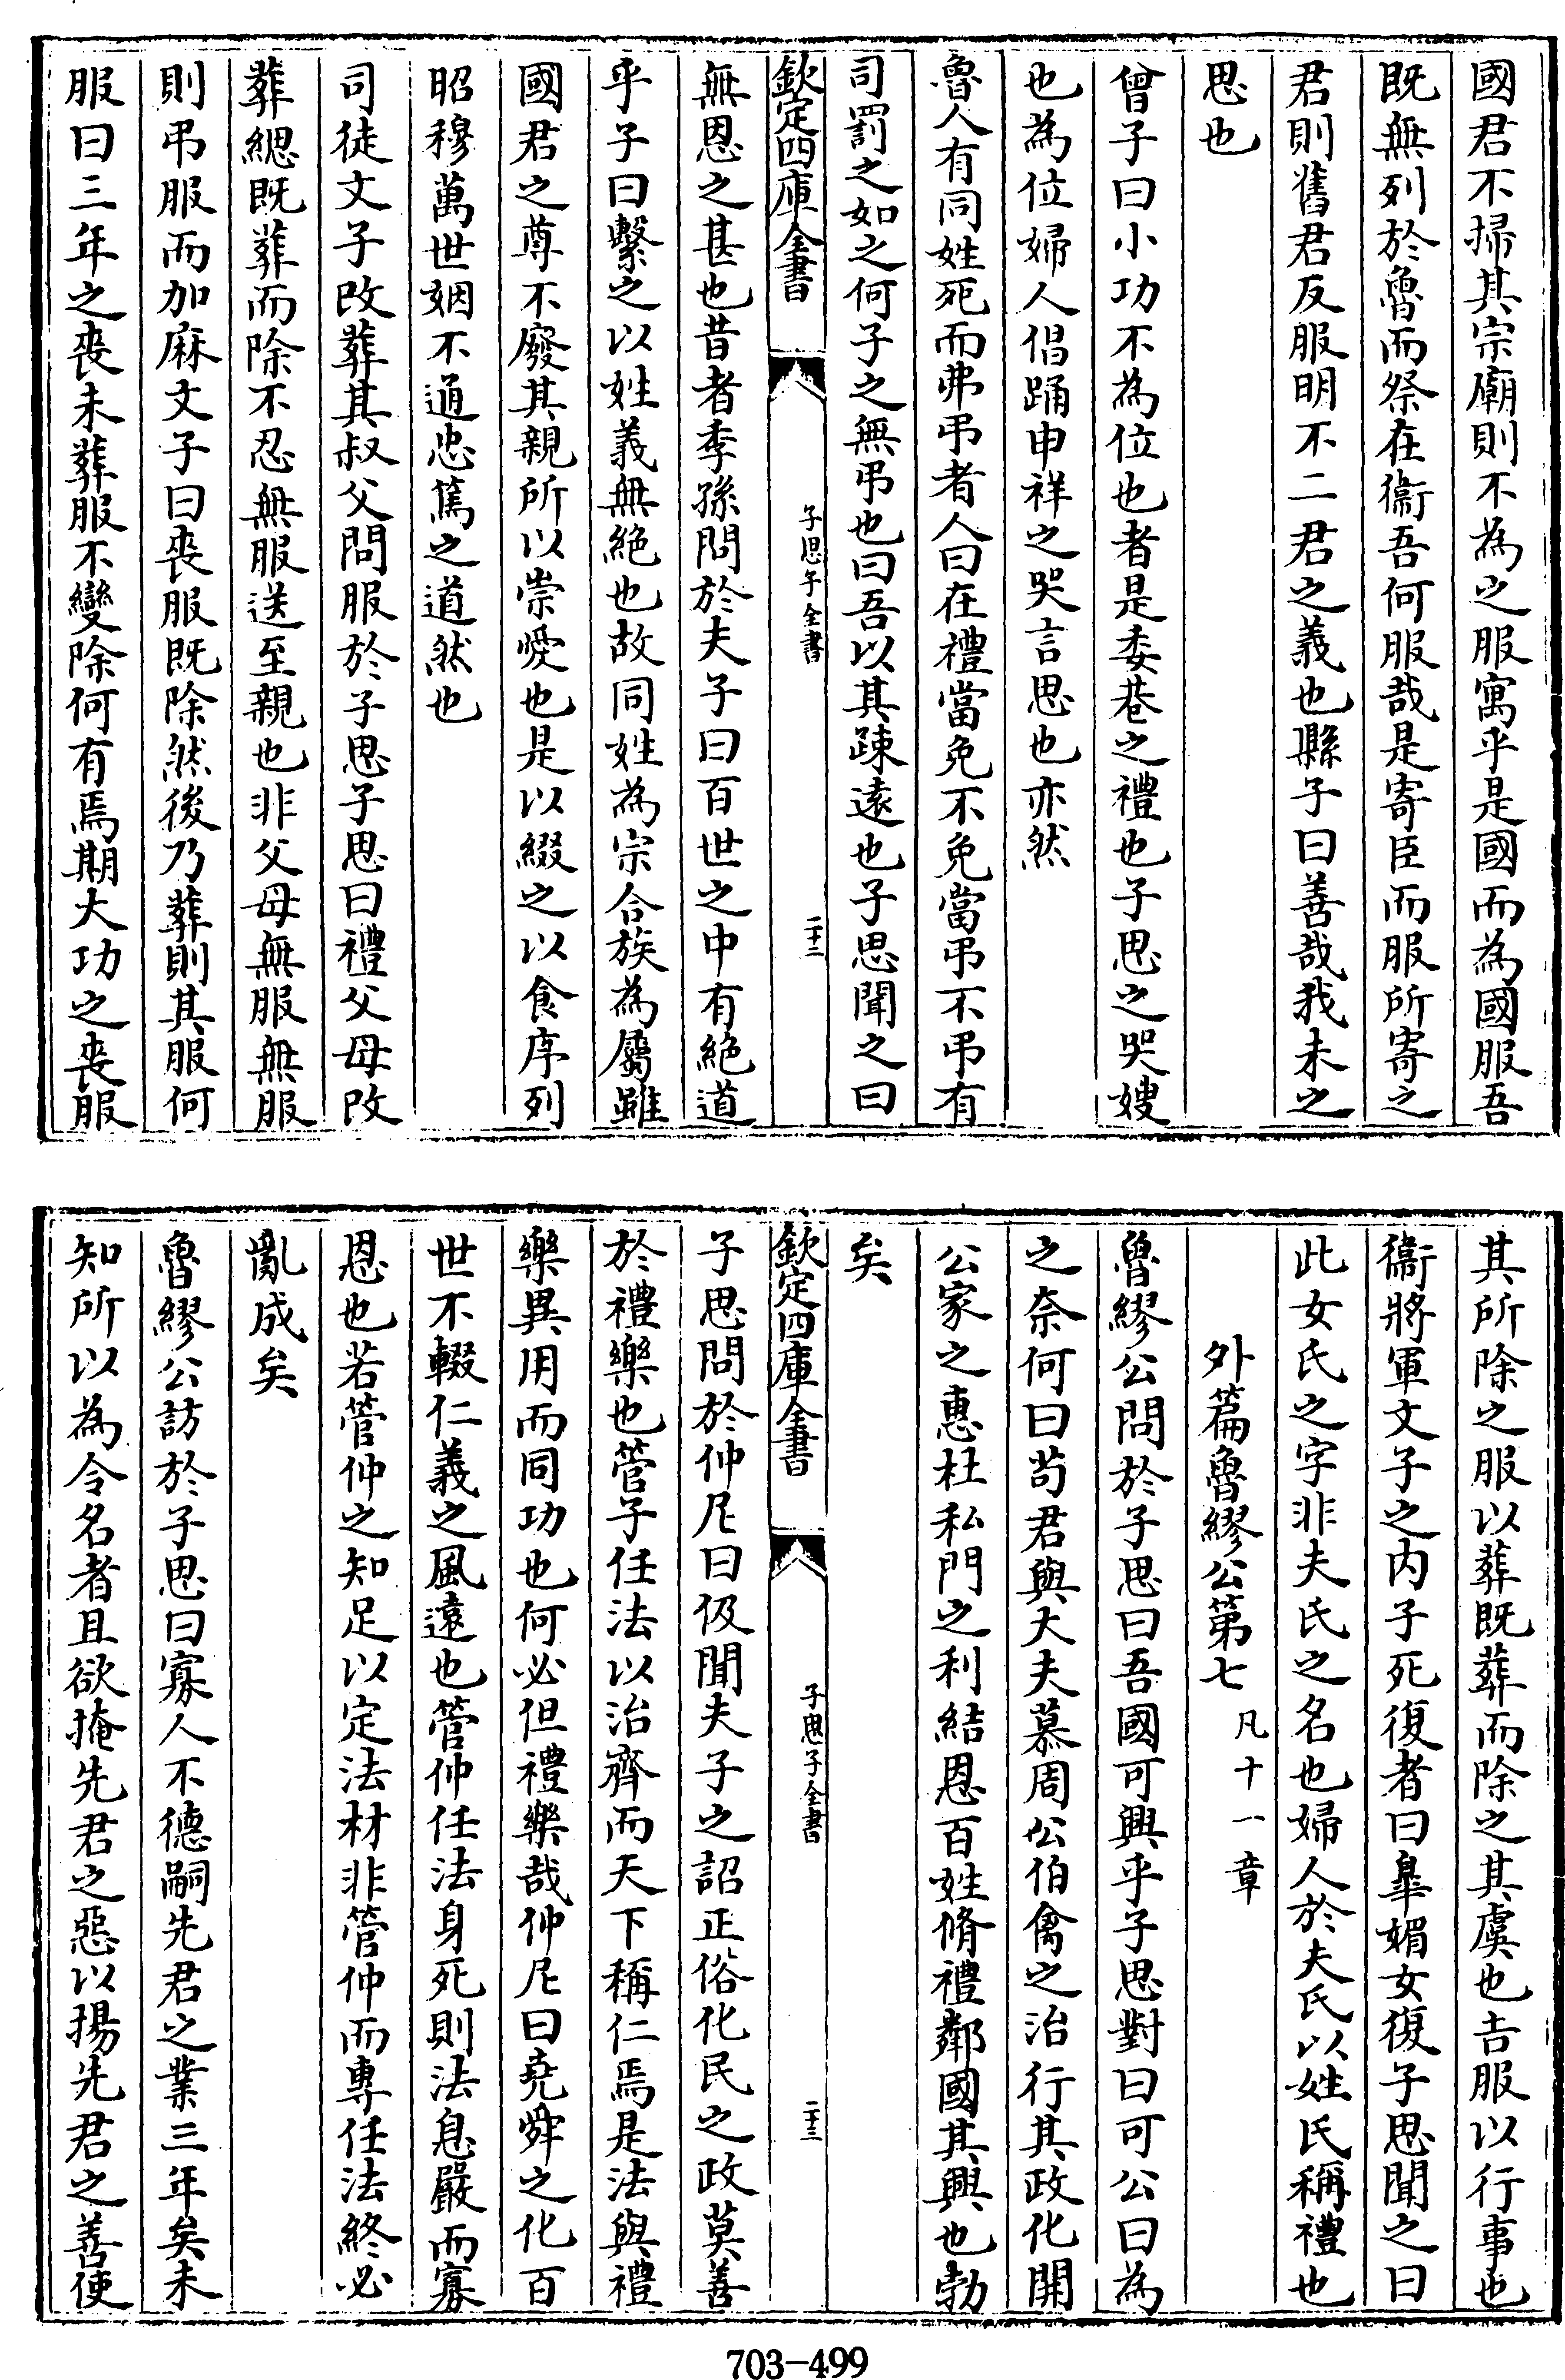 國君不掃其宗廟則不為之服寓乎是國而為國服吾
既無列於魯而祭在衞吾何服哉是寄臣而服所寄之
君則舊君反服明不二君之義也縣子曰善哉我未之
思也
曾子曰小功不為位也者是委巷之禮也子思之哭嫂
也為位婦人倡踊申祥之哭言思也亦然
魯人有同姓死而弗弔者人曰在禮當免不免當弔不弔有
司罰之如之何子之無弔也曰吾以其踈遠也子思聞之曰
欽定四庫全書
子思子全書
二十二
無恩之甚也昔者季孫問於夫子曰百世之中有絶道
乎子曰繫之以姓義無絶也故同姓為宗合族為屬雖
國君之尊不廢其親所以崇愛也是以綴之以食序列
昭穆萬世姻不通忠篤之道然也
司徒文子改葬其叔父問服於子思子思曰禮父母改
葬緦既葬而除不忍無服送至親也非父母無服無服
則弔服而加麻文子曰喪服既除然後乃葬則其服何
服曰三年之喪未葬服不變除何有焉期大功之喪服
其所除之服以葬既葬而除之其虞也吉服以行事也
衞將軍文子之内子死復者曰臯媚女復子思聞之曰
此女氏之字非夫氏之名也婦人於夫氏以姓氏稱禮也
外篇魯繆公第七 凡十一章
魯繆公問於子思曰吾國可興乎子思對曰可公曰為
之奈何曰苟君與大夫慕周公伯禽之治行其政化開
公家之惠杜私門之利結恩百姓脩禮鄰國其興也勃
矣
欽定四庫全書
子思子全書
二十三
子思問於仲尼曰伋聞夫子之詔正俗化民之政莫善
於禮樂也管子任法以治齊而天下稱仁焉是法與禮
樂異用而同功也何必但禮樂哉仲尼曰堯舜之化百
世不輟仁義之風遠也管仲任法身死則法息嚴而寡
恩也若管仲之知足以定法材非管仲而專任法終必
亂成矣
魯繆公訪於子思曰寡人不德嗣先君之業三年矣未
知所以為令名者且欲掩先君之惡以揚先君之善使
703-499